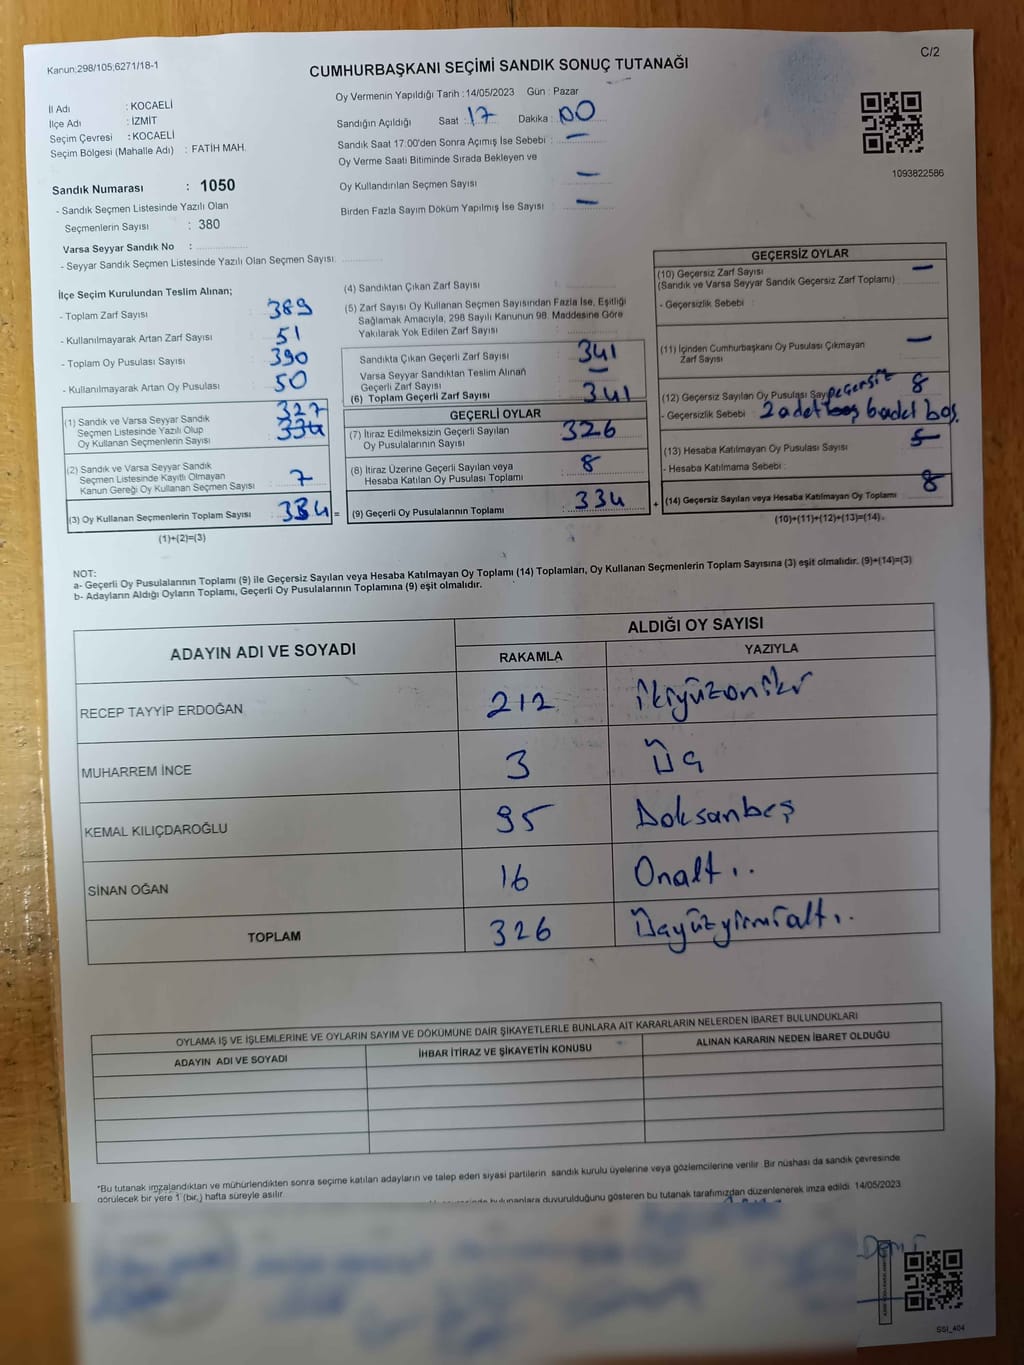 Kanun;298/105,6271/18-1
C/2
CUMHURBAŞKANI SEÇİMİ SANDIK SONUÇ TUTANAĞI
İl Adı : KOCAELİ
İlçe Adı : İZMİT
Seçim Çevresi : KOCAELİ
Seçim Bölgesi (Mahalle Adı) : FATİH MAH.
Sandık Numarası : 1050
- Sandık Seçmen Listesinde Yazılı Olan
Seçmenlerin Sayısı : 380
Varsa Seyyar Sandık No :
- Seyyar Sandık Seçmen Listesinde Yazılı Olan Seçmen Sayısı:
Oy Vermenin Yapıldığı Tarih : 14/05/2023 Gün : Pazar
Sandığın Açıldığı Saat : 17 Dakika : 00
Sandık Saat 17:00'den Sonra Açımış İse Sebebi : —
Oy Verme Saati Bitiminde Sırada Bekleyen ve
Oy Kullandırılan Seçmen Sayısı —
Birden Fazla Sayım Döküm Yapılmış İse Sayısı : —
1093822586
İlçe Seçim Kurulundan Teslim Alınan;
- Toplam Zarf Sayısı 389
- Kullanılmayarak Artan Zarf Sayısı 51
- Toplam Oy Pusulası Sayısı 390
- Kullanılmayarak Artan Oy Pusulası 50
327
(1) Sandık ve Varsa Seyyar Sandık
Seçmen Listesinde Yazılı Olup 334
Oy Kullanan Seçmenlerin Sayısı
(2) Sandık ve Varsa Seyyar Sandık
Seçmen Listesinde Kayıtlı Olmayan
Kanun Gereği Oy Kullanan Seçmen Sayısı : 7
(3) Oy Kullanan Seçmenlerin Toplam Sayısı : 334 =
(1)+(2)=(3)
(4) Sandıktan Çıkan Zarf Sayısı
(5) Zarf Sayısı Oy Kullanan Seçmen Sayısından Fazla İse, Eşitliği
Sağlamak Amacıyla, 298 Sayılı Kanunun 98. Maddesine Göre
Yakılarak Yok Edilen Zarf Sayısı
Sandıkta Çıkan Geçerli Zarf Sayısı : 341
Varsa Seyyar Sandıktan Teslim Alınan
Geçerli Zarf Sayısı : —
(6) Toplam Geçerli Zarf Sayısı : 341
GEÇERLİ OYLAR
(7) İtiraz Edilmeksizin Geçerli Sayılan
Oy Pusulalarının Sayısı : 326
(8) İtiraz Üzerine Geçerli Sayılan veya
Hesaba Katılan Oy Pusulası Toplamı : 8
(9) Geçerli Oy Pusulalarının Toplamı : 334 +
GEÇERSİZ OYLAR
(10) Geçersiz Zarf Sayısı —
(Sandık ve Varsa Seyyar Sandık Geçersiz Zarf Toplamı) :
- Geçersizlik Sebebi :
(11) İçinden Cumhurbaşkanı Oy Pusulası Çıkmayan —
Zarf Sayısı
(12) Geçersiz Sayılan Oy Pusulası Sayısı geçersiz 8
- Geçersizlik Sebebi : 2 adet boş 6 adet boş.
(13) Hesaba Katılmayan Oy Pusulası Sayısı
- Hesaba Katılmama Sebebi :
(14) Geçersiz Sayılan veya Hesaba Katılmayan Oy Toplamı 8
(10)+(11)+(12)+(13)=(14).
NOT:
a- Geçerli Oy Pusulalarının Toplamı (9) ile Geçersiz Sayılan veya Hesaba Katılmayan Oy Toplamı (14) Toplamları, Oy Kullanan Seçmenlerin Toplam Sayısına (3) eşit olmalıdır. (9)+(14)=(3)
b- Adayların Aldığı Oyların Toplamı, Geçerli Oy Pusulalarının Toplamına (9) eşit olmalıdır.
ADAYIN ADI VE SOYADI
ALDIĞI OY SAYISI
RAKAMLA YAZIYLA
RECEP TAYYİP ERDOĞAN 212 ikiyüzoniki
MUHARREM İNCE 3 Üç
KEMAL KILIÇDAROĞLU 95 Doksanbeş
SİNAN OĞAN 16 Onaltı..
TOPLAM 326 Üçyüzyirmialtı.
OYLAMA İŞ VE İŞLEMLERİNE VE OYLARIN SAYIM VE DÖKÜMÜNE DAİR ŞİKAYETLERLE BUNLARA AİT KARARLARIN NELERDEN İBARET BULUNDUKLARI
ADAYIN ADI VE SOYADI İHBAR İTİRAZ VE ŞİKAYETİN KONUSU ALINAN KARARIN NEDEN İBARET OLDUĞU
*Bu tutanak imzalandıktan ve mühürlendikten sonra seçime katılan adayların ve talep eden siyasi partilerin sandık kurulu üyelerine veya gözlemcilerine verilir. Bir nüshası da sandık çevresinde
görülecek bir yere 1 (bir,) hafta süreyle asılır.
bulunanlara duyurulduğunu gösteren bu tutanak tarafımızdan düzenlenerek imza edildi. 14/05/2023
SSI_404